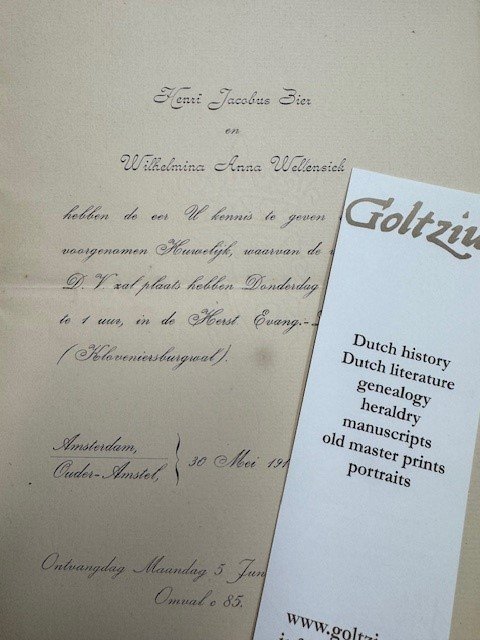 Henri Jacobus Bier
en
Wilhelmina Anna Wellensiek
hebben de eer U kennis te geven
voorgenomen Huwelijk, waarvan de
D. V. zal plaats hebben Donderdag
te 1 uur, in de Herst Evang.-
(Kloveniersburgwal).
Amsterdam,
Ouder-Amstel,
30 Mei 191
Ontvangdag Maandag 5 Jun
Omval c 85.
Goltziu
Dutch history
Dutch literature
genealogy
heraldry
manuscripts
old master prints
portraits
www.goltzi